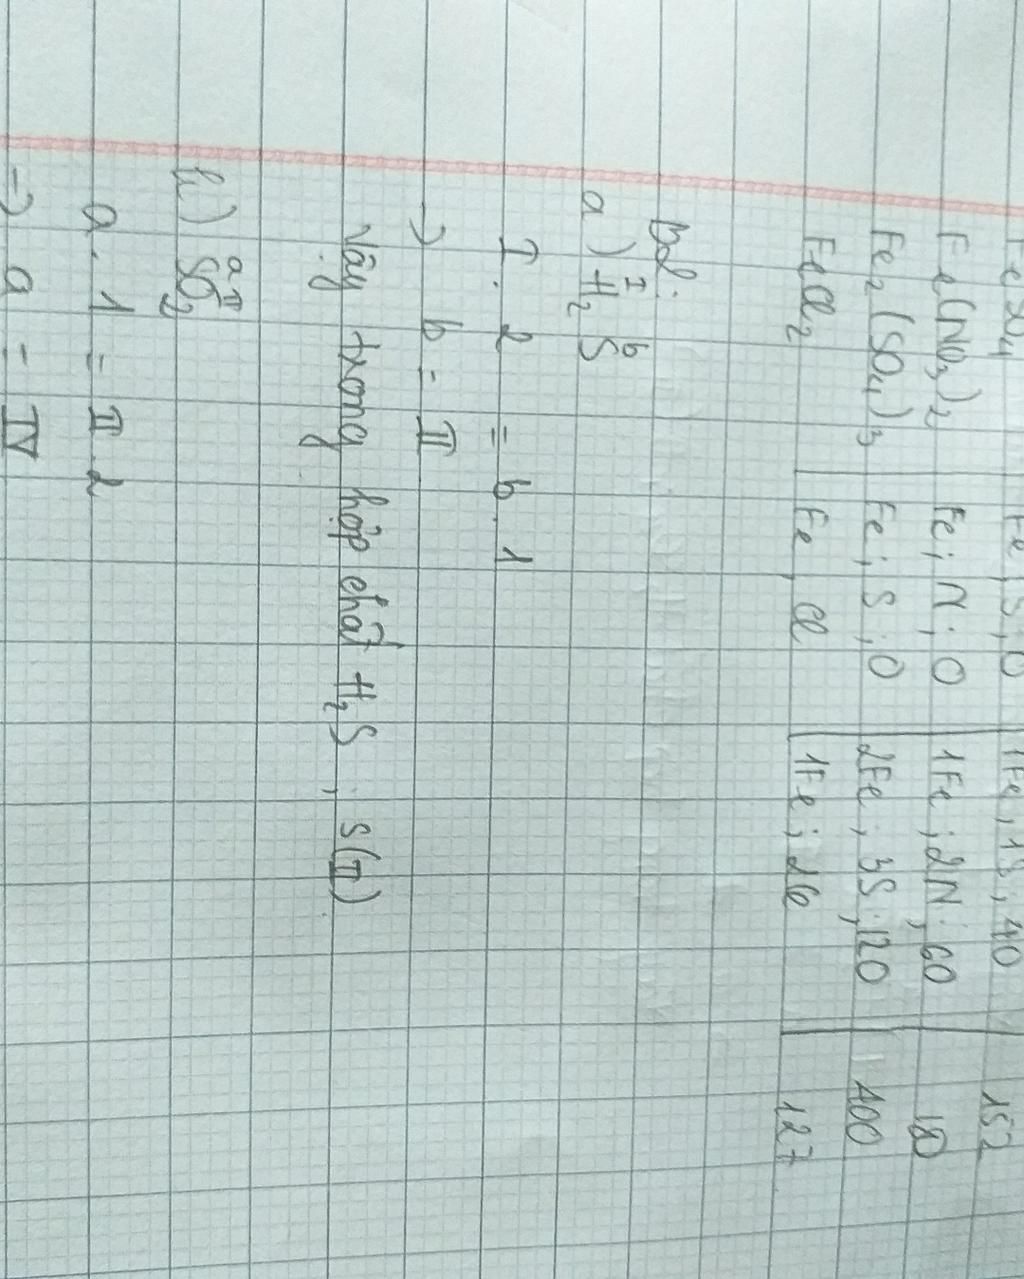 FeSO4 | Fe; S; O | 1Fe; 1S; 4O | 152
Fe(NO3)2 | Fe; N; O | 1Fe; 2N; 6O
Fe2(SO4)3 | Fe; S; O | 2Fe; 3S; 12O | 400
FeCl2 | Fe, Cl | 1Fe; 2Cl | 127
B2:
a) H2 S
I b
I. 2 = b. 1
→ b = II
Vậy trong hợp chất H2S, S(II).
b) SO2
a II
a. 1 = II. 2
→ a = IV